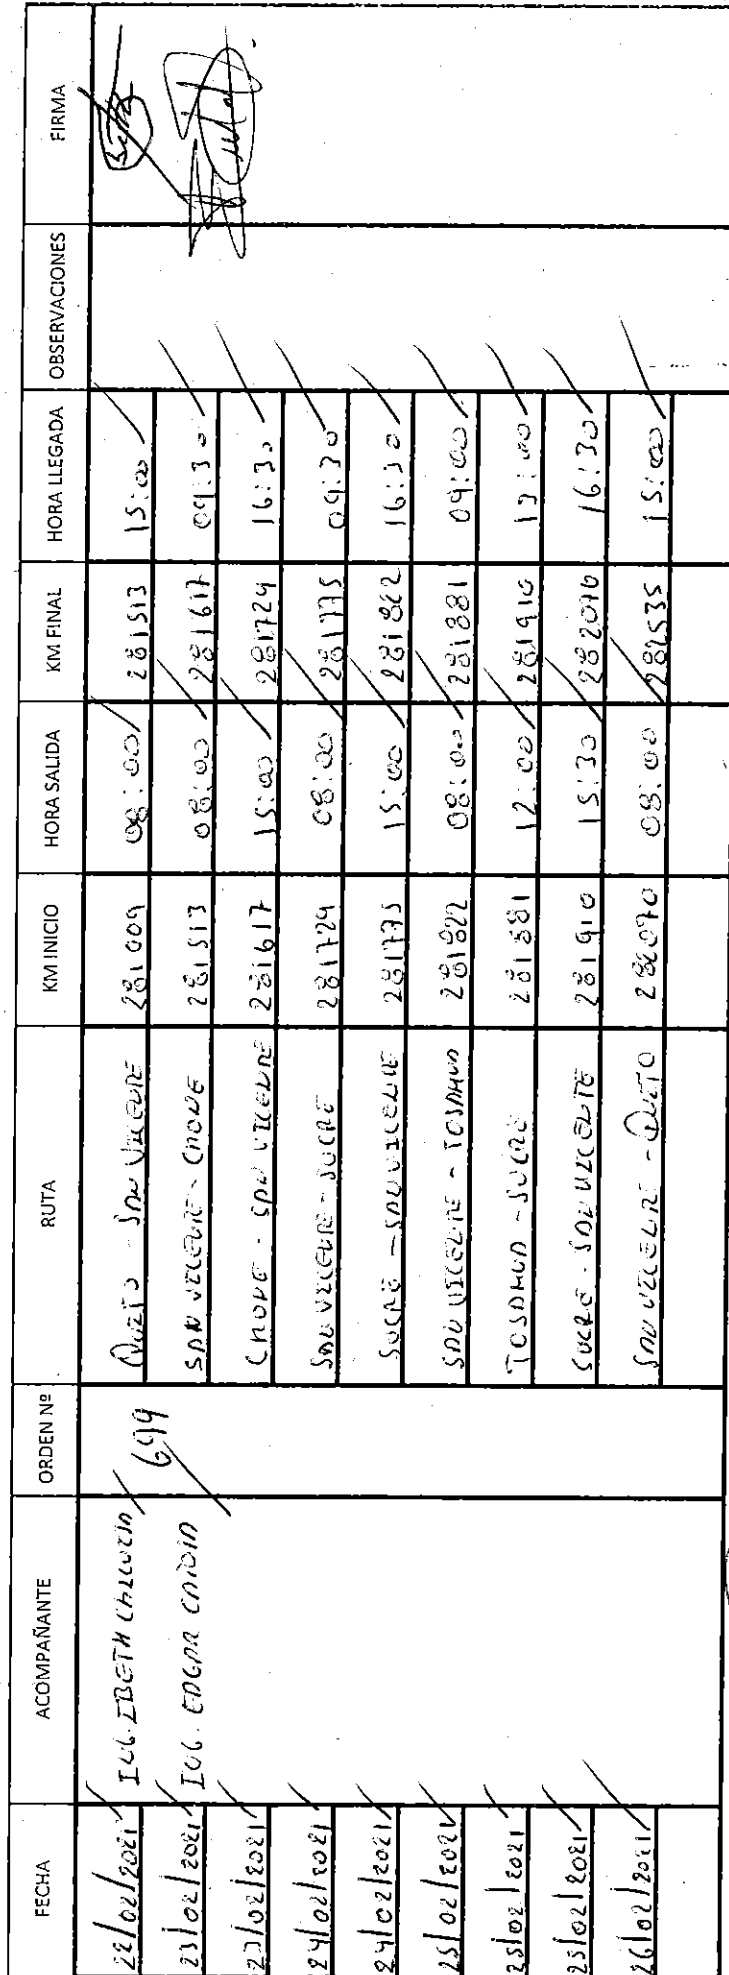 FECHA ACOMPAÑANTE ORDEN Nº RUTA KM INICIO HORA SALIDA KM FINAL HORA LLEGADA OBSERVACIONES FIRMA
22/02/2021 ING. IBETH 699 QUITO - SAN VICENTE 281009 08:00 281513 15:00
23/02/2021 ING. EDGAR SAN VICENTE - CHONE 281513 08:00 281617 09:30
23/02/2021 CHONE - SAN VICENTE 281617 15:00 281724 16:30
24/02/2021 SAN VICENTE - SUCRE 281729 08:00 281775 09:30
24/02/2021 SUCRE - SAN VICENTE 281775 15:00 281822 16:30
25/02/2021 SAN VICENTE - TOSAHUA 281822 08:00 281881 09:00
25/02/2021 TOSAHUA - SUCRE 281881 12:00 281910 13:00
25/02/2021 SUCRE - SAN VICENTE 281910 15:30 282070 16:30
26/02/2021 SAN VICENTE - QUITO 282070 08:00 282535 15:00